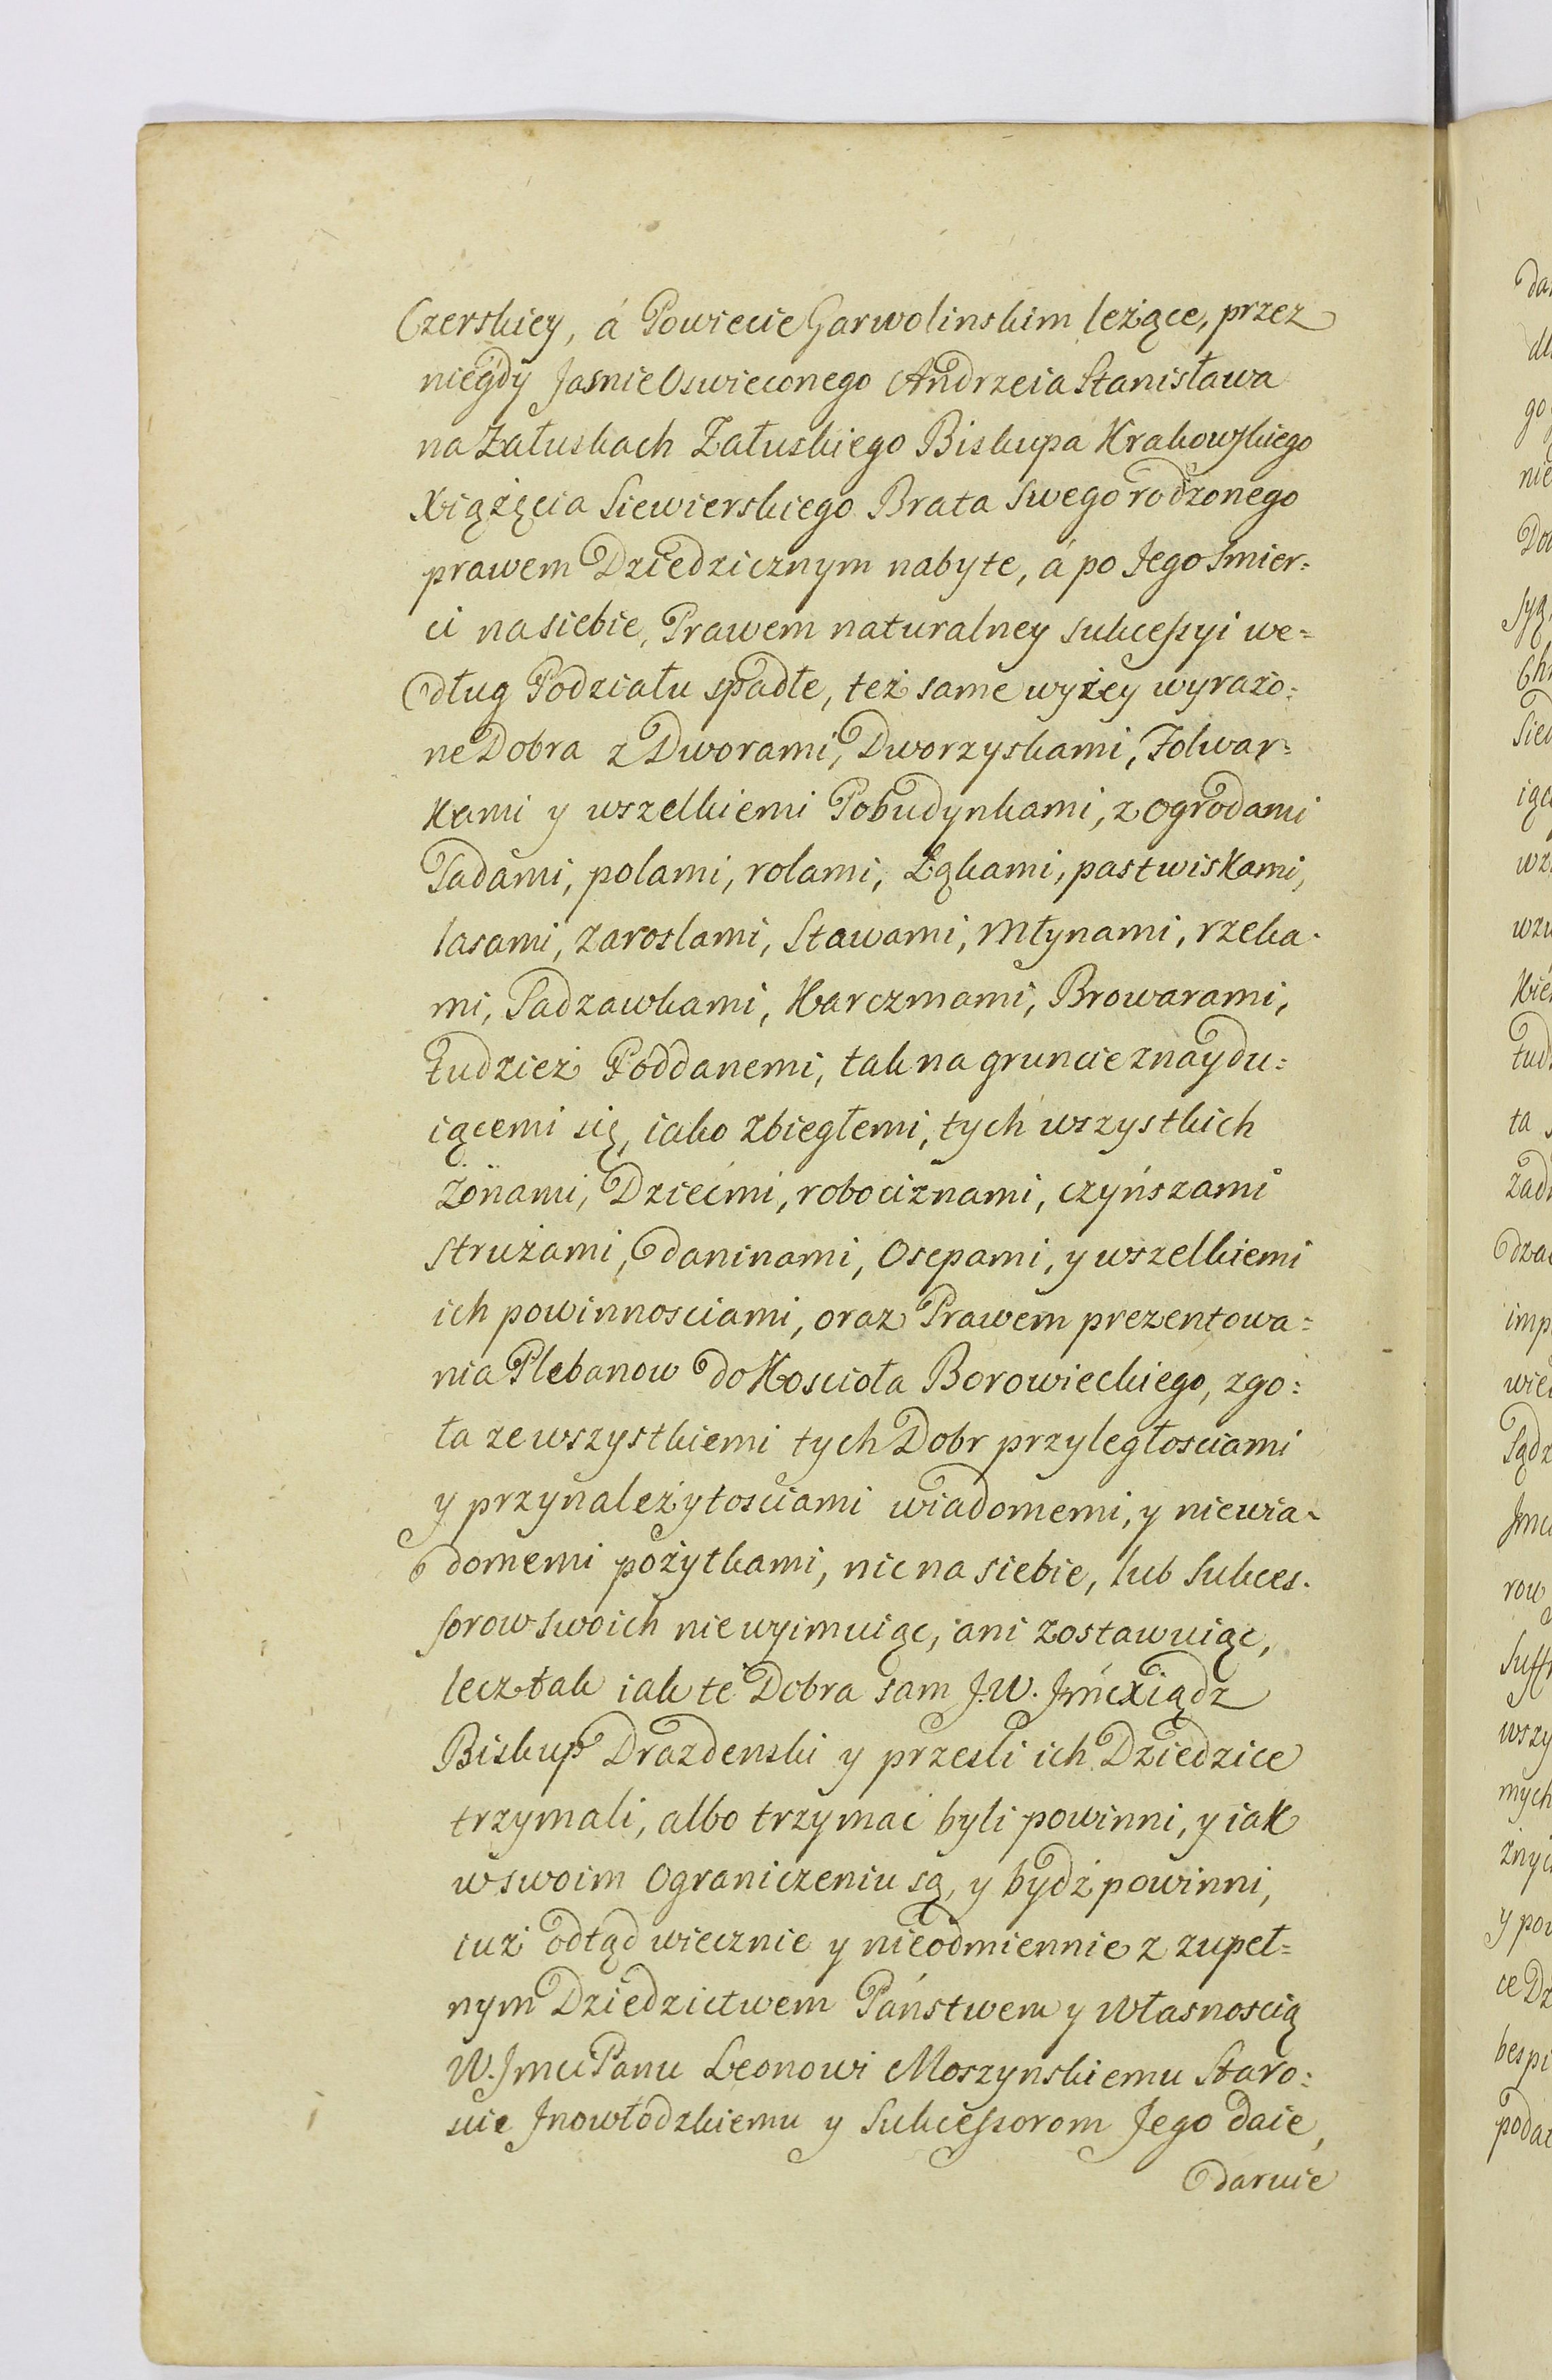 Czerskiey, á Powiecie Garwolinskim leżące, przez
niegdy Jasnie Oswieconego Andrzeia Stanisława
na Załuskach Załuskiego Biskupa Krakowskiego
Xiążęcia Siewierskiego Brata Swego rodzonego
prawem Dziedzicznym nabyte, á po Jego Smier=
ci na siebie, Prawem naturalney sukcessyi we=
dług Podziału spadłe, też same wyżey wyrażo=
ne Dobra z Dworami, Dworzyskami, Folwar=
kami y wszelkiemi Pobudynkami, z Ogrodami
Sadami, polami, rolami, Łąkami, pastwiskami,
lasami, zaroslami, Stawami, Młynami, rzeka-
mi, Sadzawkami, Karczmami, Browarami,
tudzież Poddanemi, tak na gruncie znaydu=
iącemi się, iako zbiegłemi, tych wszystkich
Żonami, Dziećmi, robociznami, czyńszami
strużami, daninami, Osepami, y wszelkiemi
ich powinnosciami, oraz Prawem prezentowa=
nia Plebanow do Koscioła Borowieckiego, zgo=
ła ze wszystkiemi tych Dobr przyległosciami
y przynależytosciami wiadomemi, y niewia-
domemi pożytkami, nic na siebie, lub Sukces-
sorow swoich nie wyimuiąc, ani zostawuiąc,
lecz tak iak te Dobra sam J.W. Jmćxiądz
Biskup Drazdenski y przesli ich Dziedzice
trzymali, albo trzymać byli powinni, y iak
w swoim Ograniczeniu są, y bydź powinni,
iuż odtąd wiecznie y nieodmiennie z zupeł=
nym Dziedzictwem Państwem y Własnoscią
W. Jmci Panu Leonowi Moszynskiemu Staro=
scie Jnowłodzkiemu y Sukcessorom Jego daie,
daruie